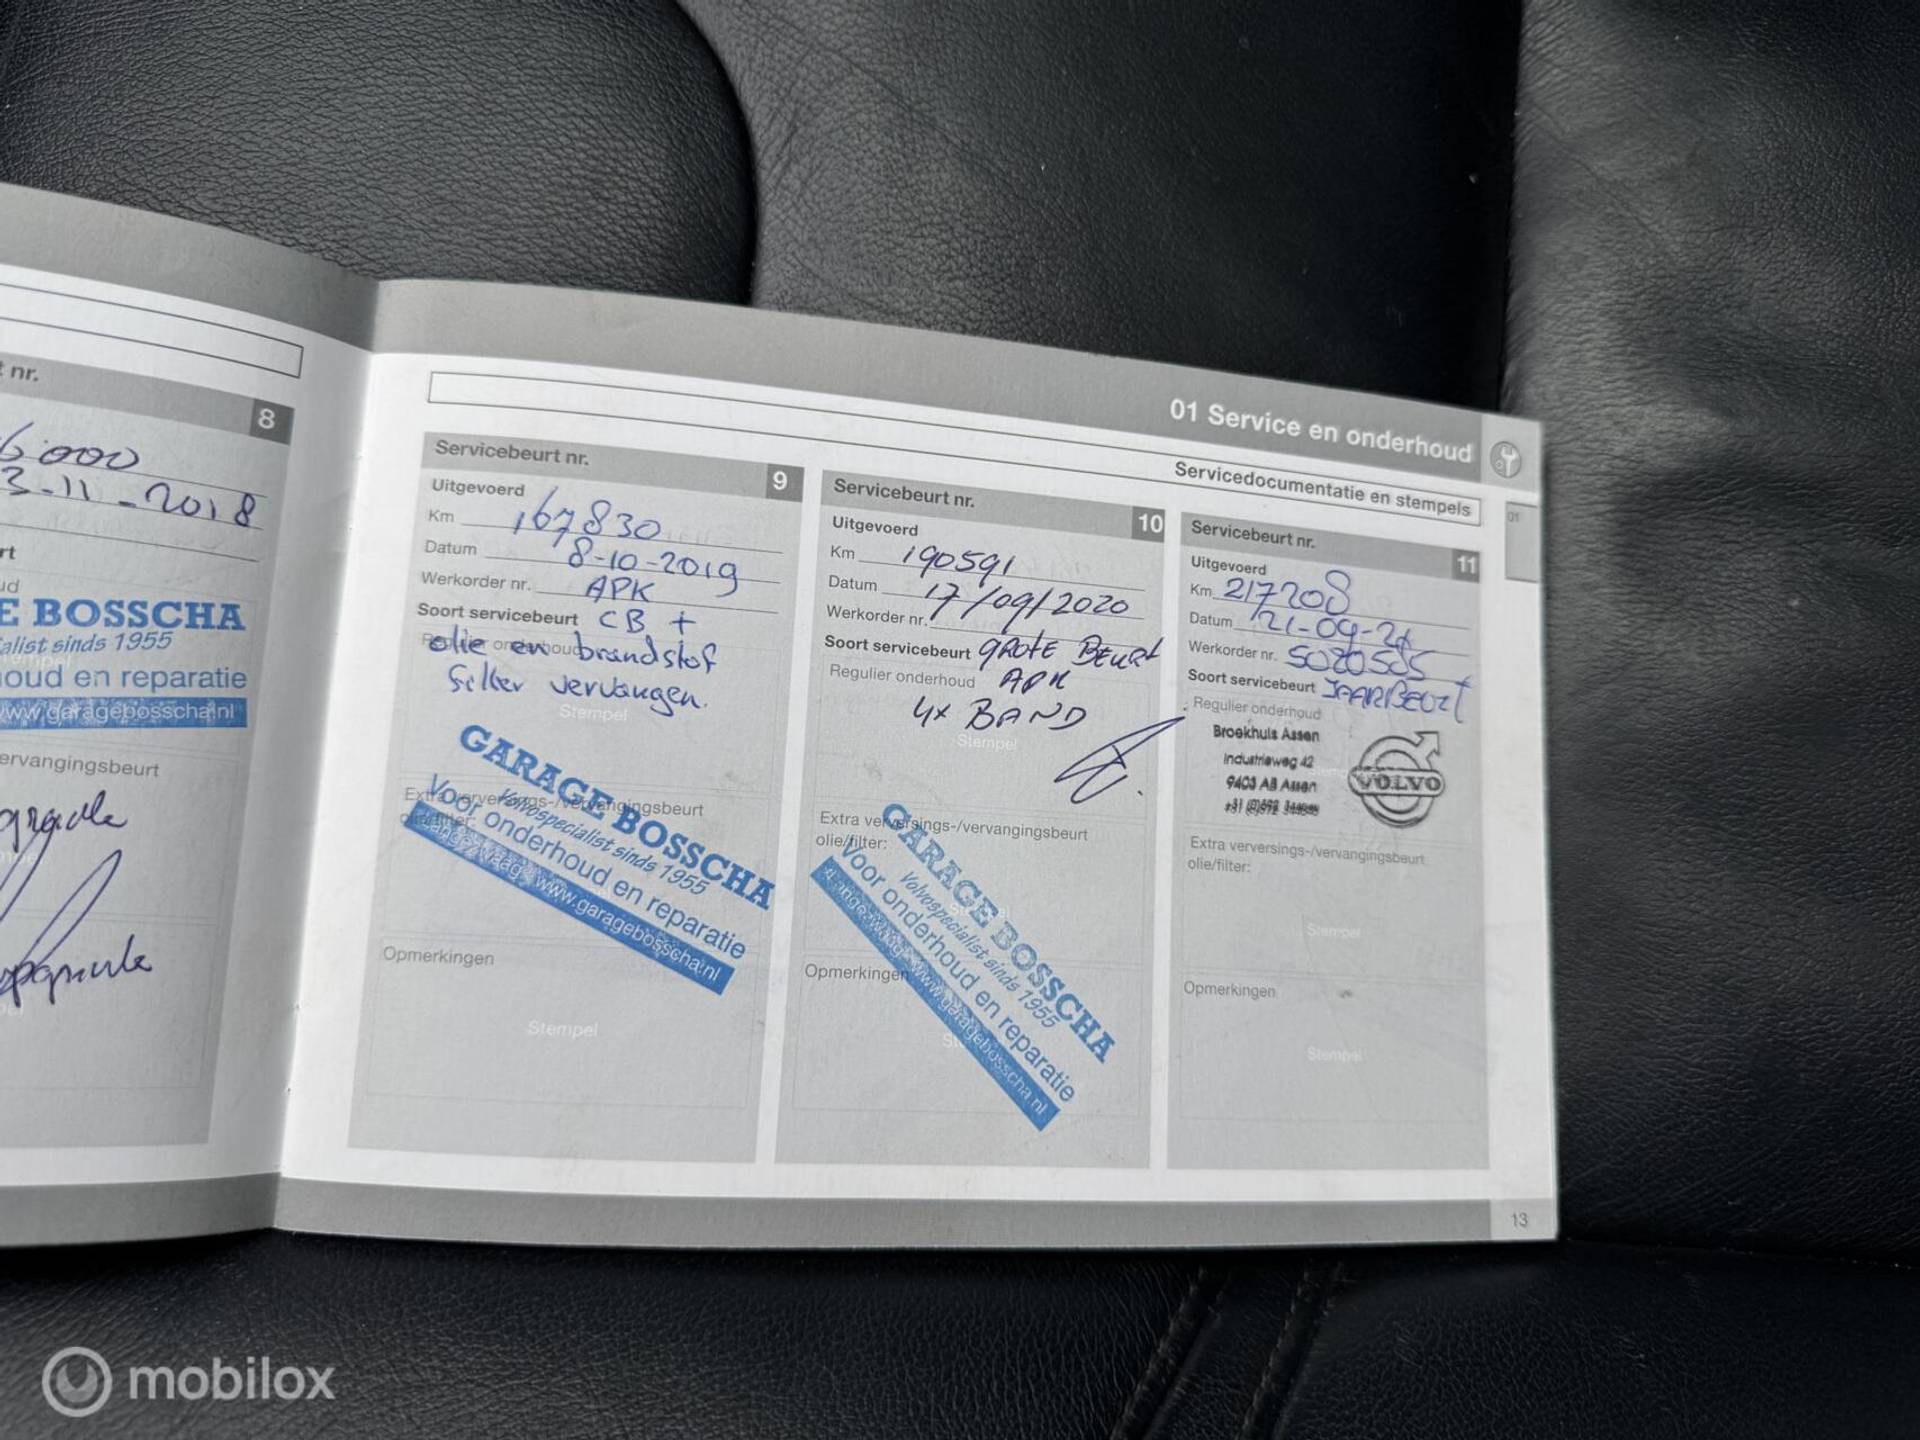 t nr.
8
6.000
3-11-2018
rt
ud
E BOSSCHA
alist sinds 1955
oud en reparatie
www.garagebosscha.nl
ervangingsbeurt
01 Service en onderhoud
Servicedocumentatie en stempels
01
Servicebeurt nr.
9
Uitgevoerd
Km 167830
Datum 8-10-2019
Werkorder nr. APK
Soort servicebeurt CB +
Regulier onderhoud
olie en brandstof
filter vervangen.
Stempel
GARAGE BOSSCHA
Volvospecialist sinds 1955
Voor onderhoud en reparatie
www.garagebosscha.nl
Extra verversings-/vervangingsbeurt
olie/filter:
Opmerkingen
Stempel
Servicebeurt nr.
10
Uitgevoerd
Km 190591
Datum 17/09/2020
Werkorder nr.
Soort servicebeurt GROTE BEURT
Regulier onderhoud APK
4x BAND
Stempel
Extra verversings-/vervangingsbeurt
olie/filter:
GARAGE BOSSCHA
Volvospecialist sinds 1955
Voor onderhoud en reparatie
www.garagebosscha.nl
Opmerkingen
Servicebeurt nr.
11
Uitgevoerd
Km 217208
Datum 21-09-21
Werkorder nr. 5020505
Soort servicebeurt JAARBEURT
Regulier onderhoud
Broekhuis Assen
Industrieweg 42
9403 AB Assen
VOLVO
Extra verversings-/vervangingsbeurt
olie/filter:
Stempel
Opmerkingen
Stempel
13
mobilox